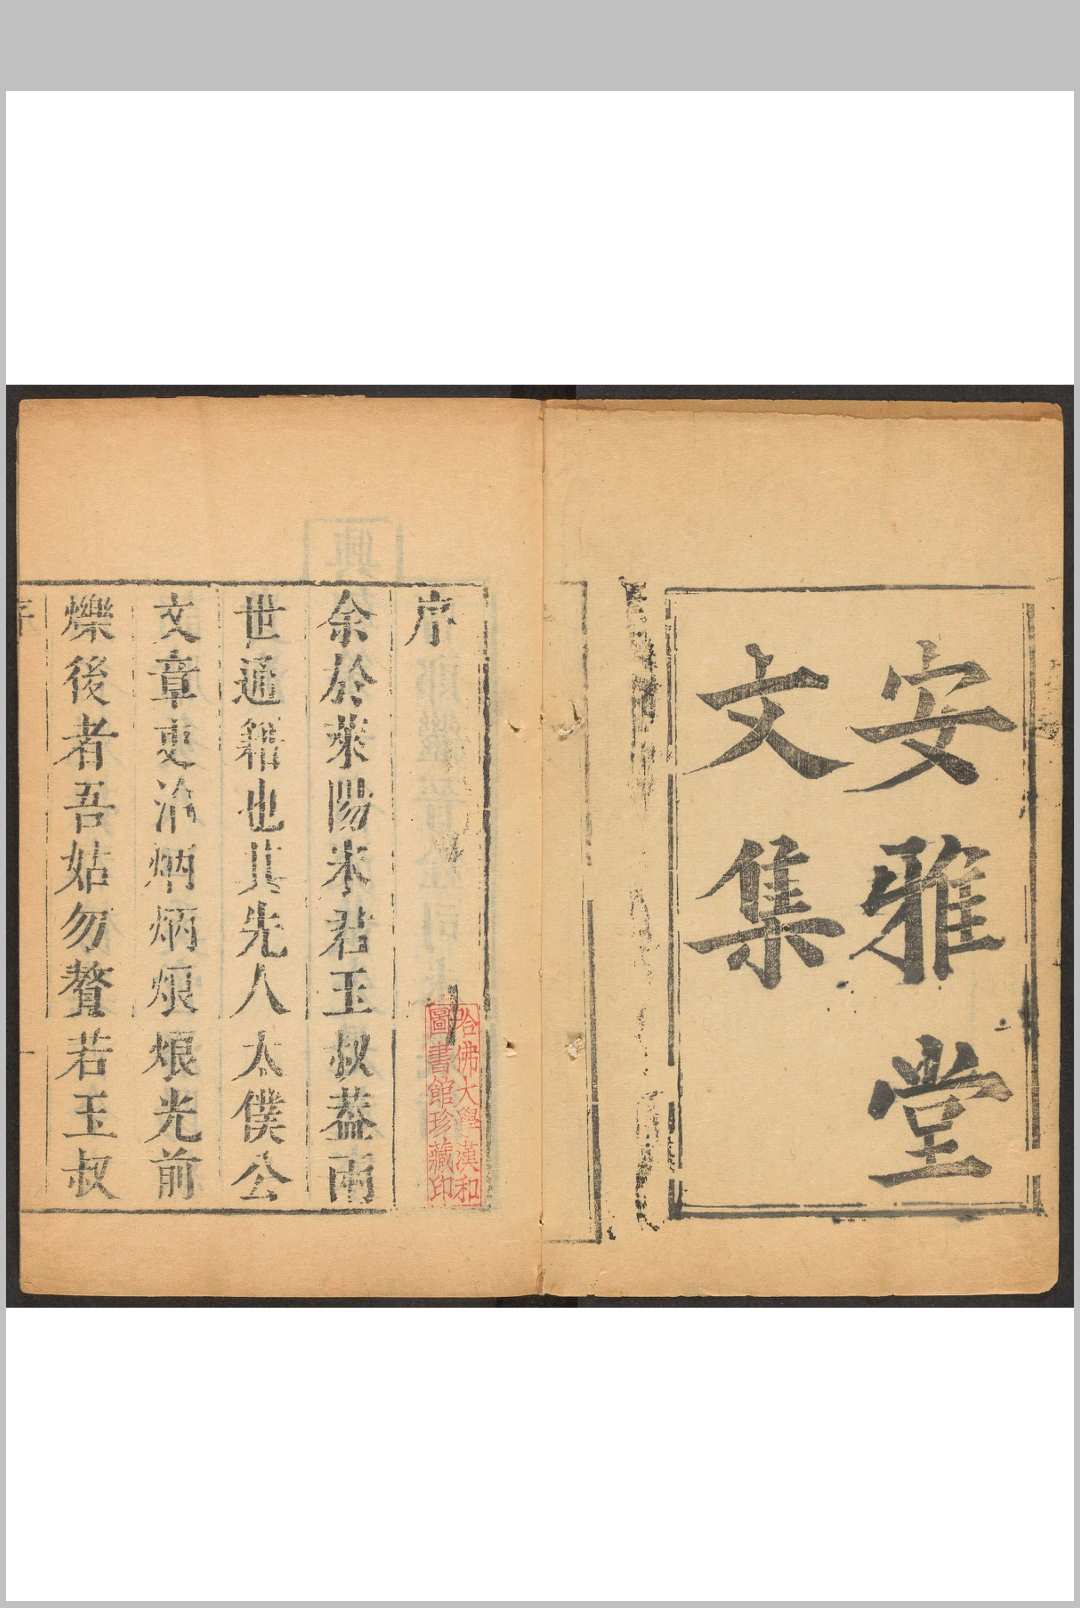 安雅堂
文集
序
余於萊陽宋君玉叔葢兩
世通籍也其先人太僕公
文章吏治炳炳烺烺光前
爍後者吾姑勿贅若玉叔
哈佛大學漢和
圖書館珍藏印